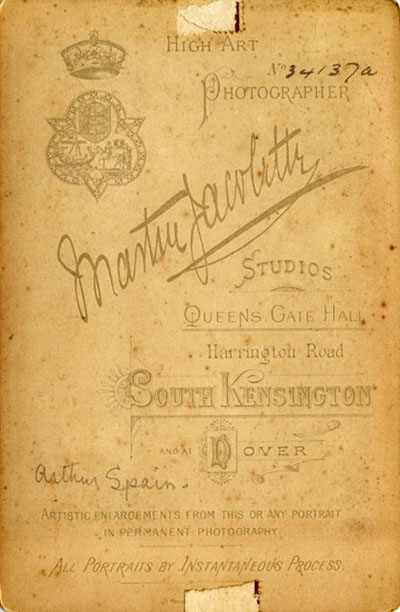 HIGH ART
No 34137a
PHOTOGRAPHER
Martin Jacolette
STUDIOS
QUEENS GATE HALL
Harrington Road
SOUTH KENSINGTON
AND AT DOVER
Arthur Spain.
ARTISTIC ENLARGEMENTS FROM THIS OR ANY PORTRAIT
IN PERMANENT PHOTOGRAPHY
ALL PORTRAITS BY INSTANTANEOUS PROCESS.